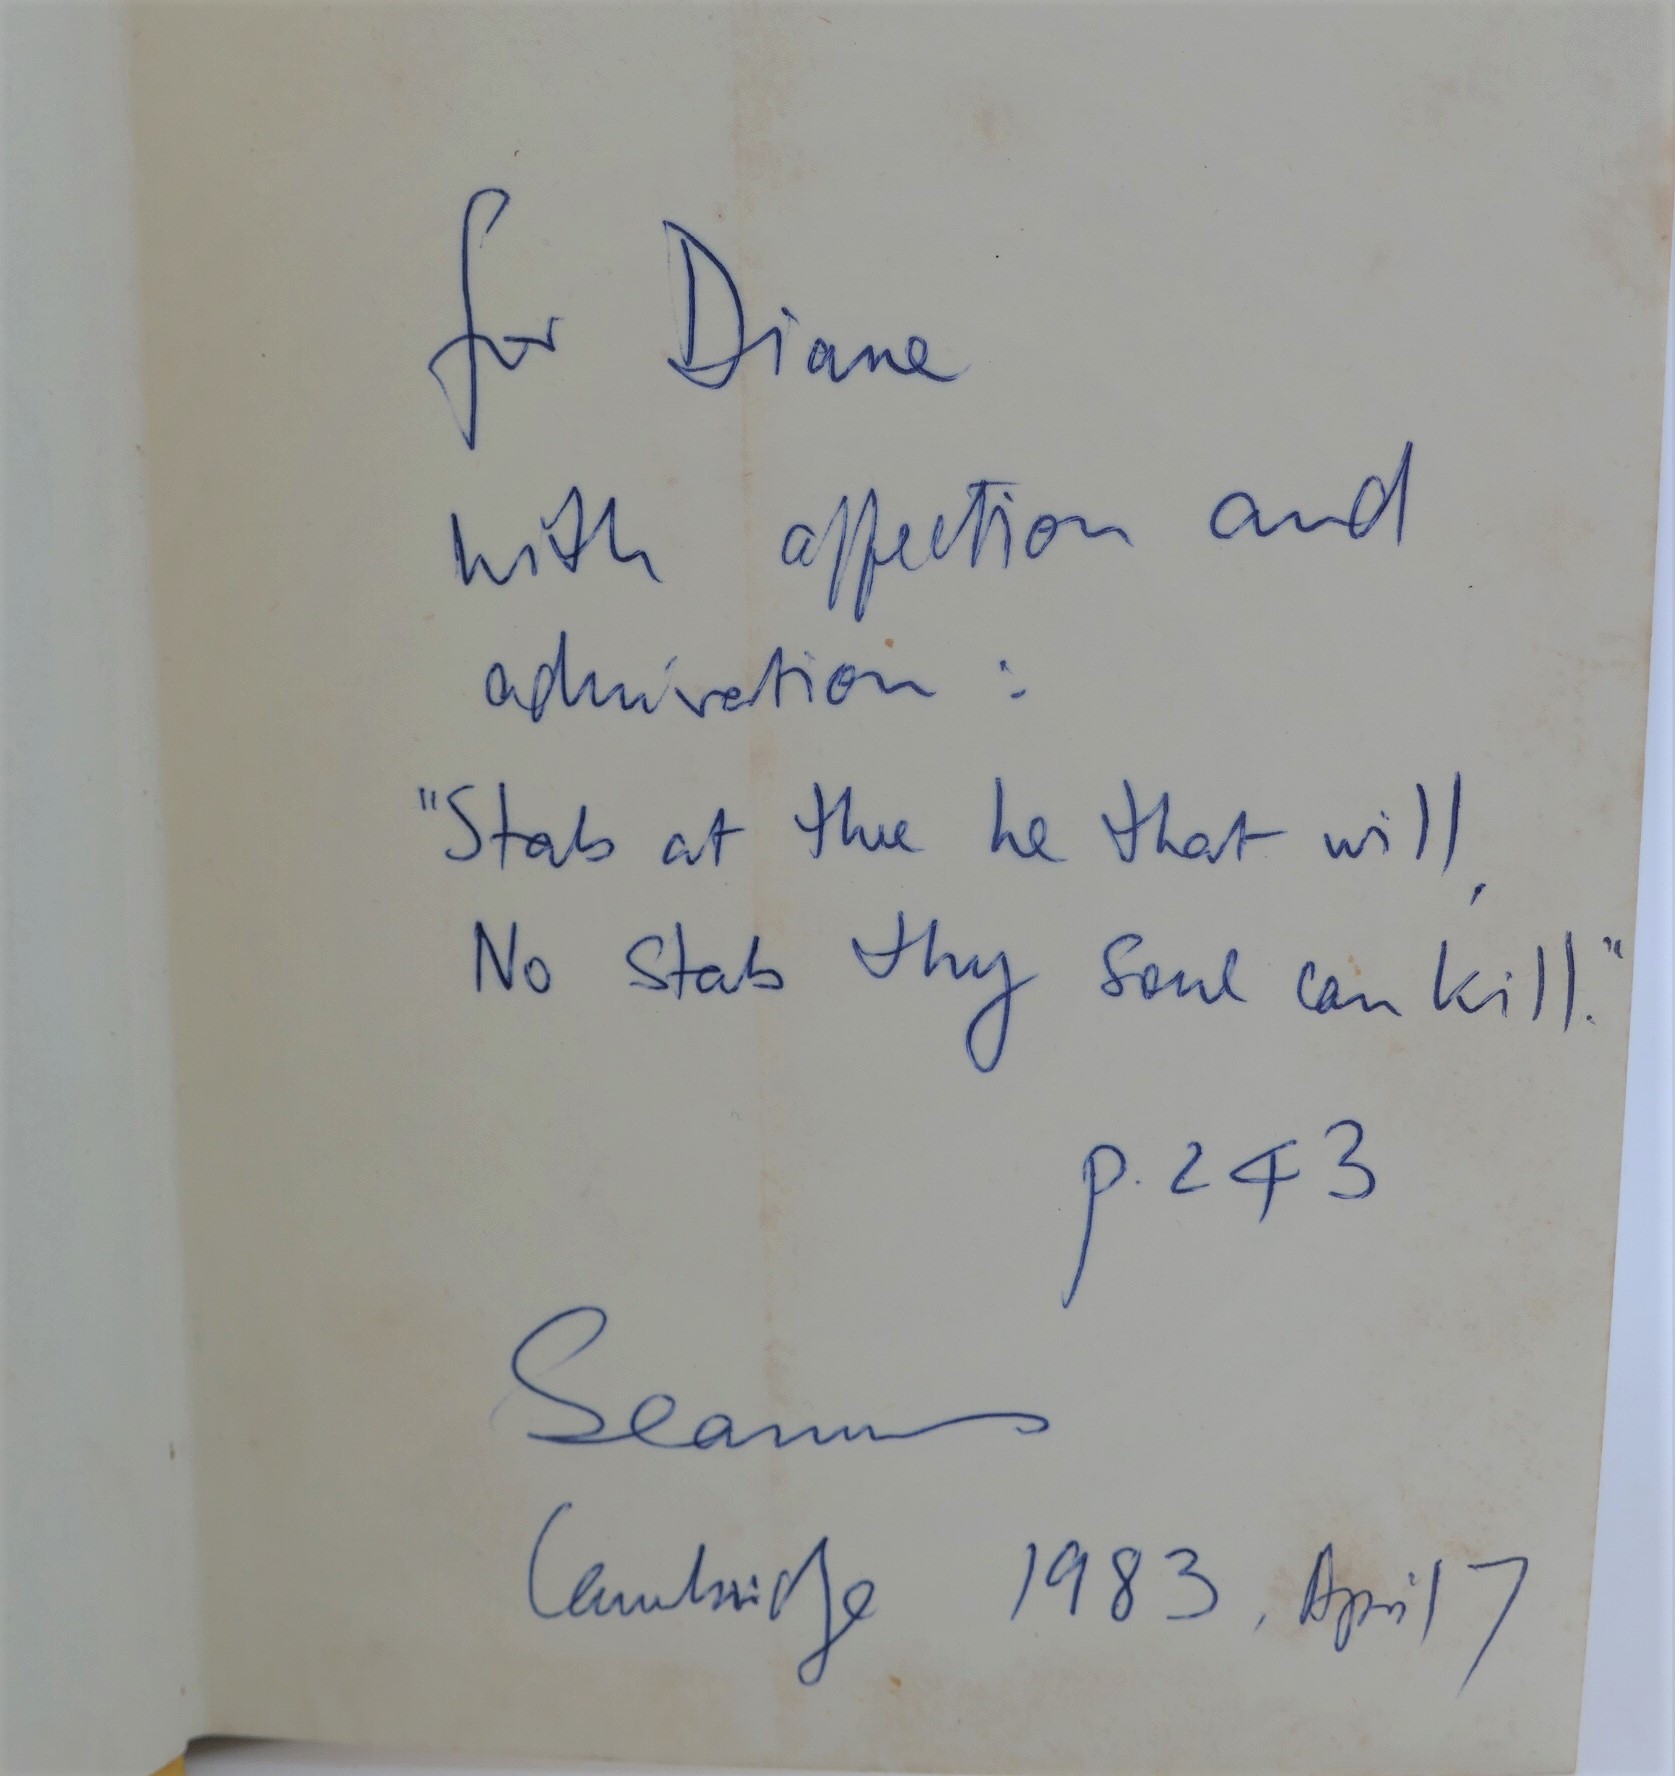 for Diane
with affection and
admiration :
"Stab at thee he that will,
No stab thy soul can kill."
p. 243
Seamus
Cambridge 1983, April 7